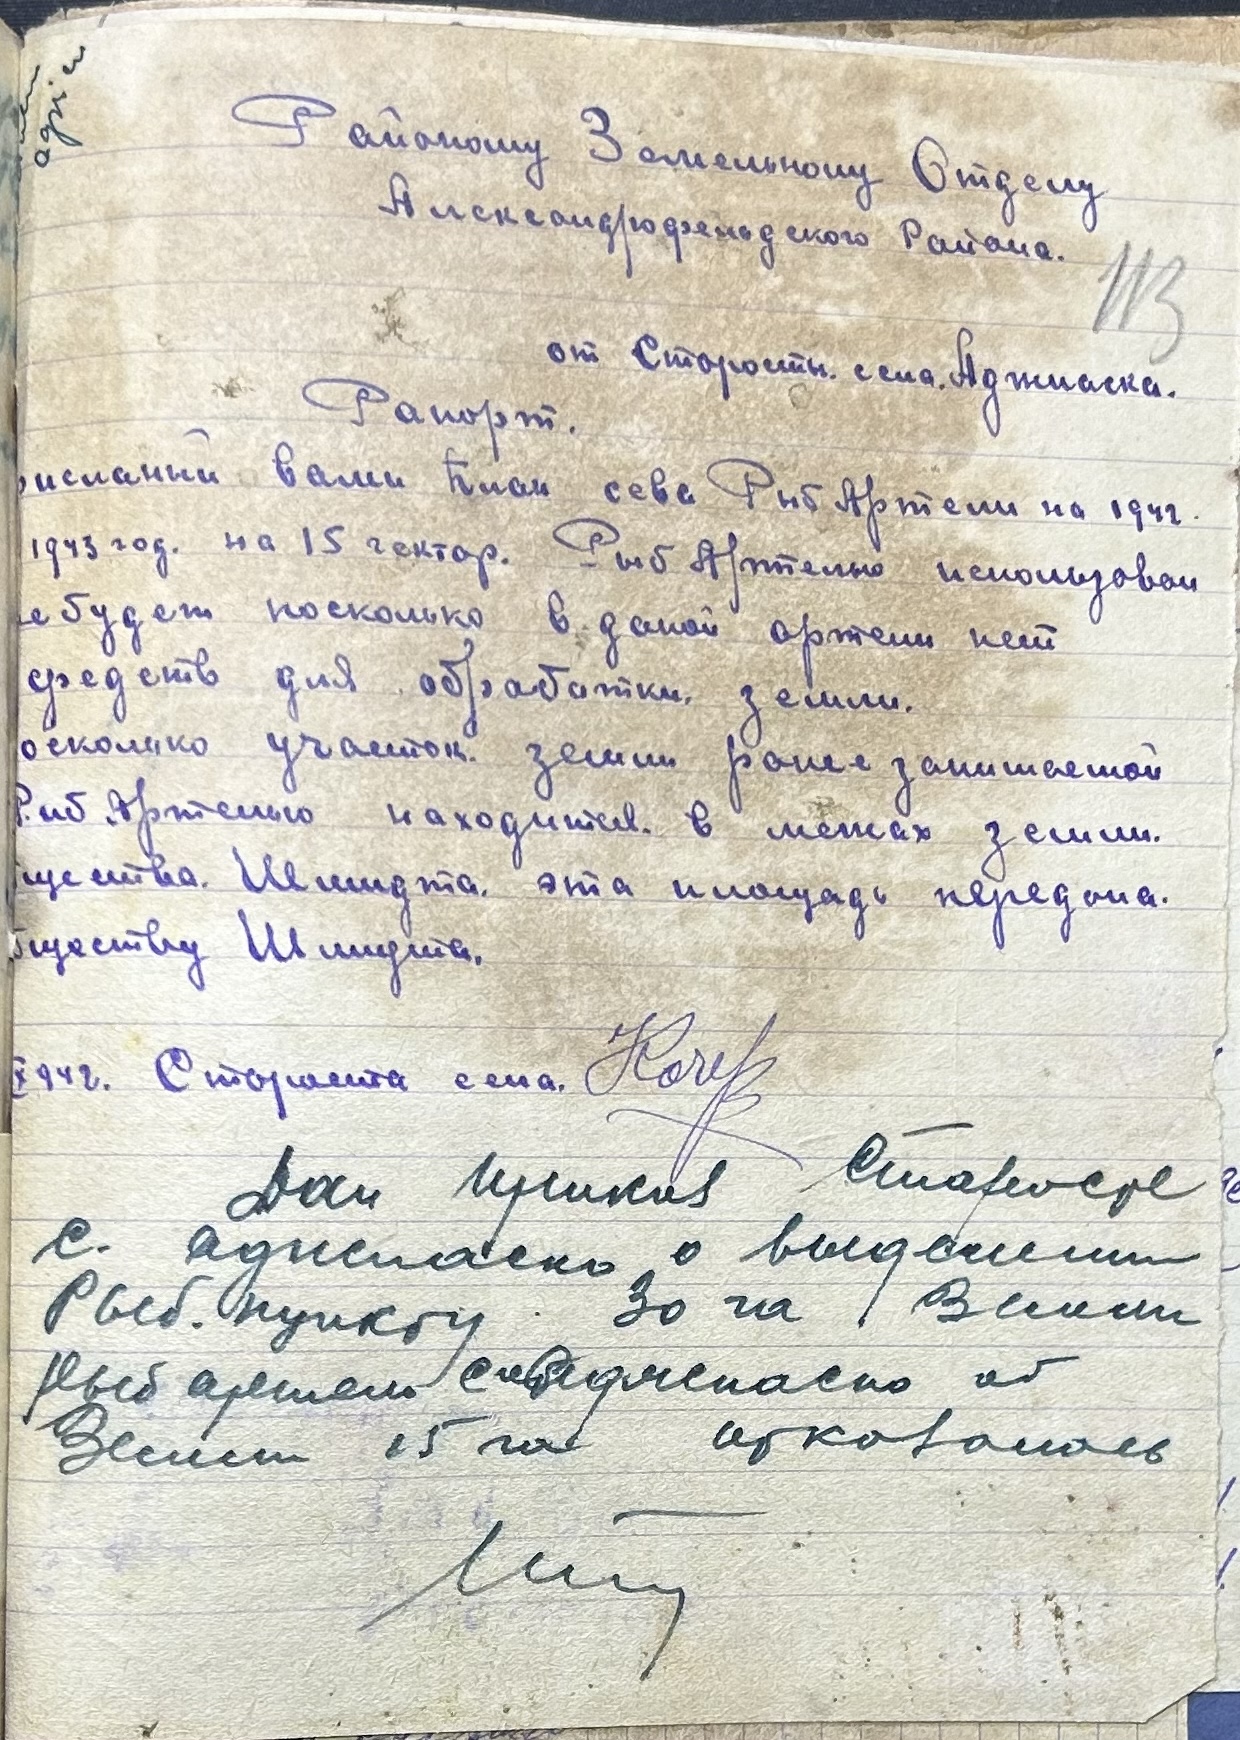 agric
Районому Земельному Отделу
Александрофельдского Района.
113
от Старосты. села. Аджиаска.
Рапорт.
рисланый вами План сева Рыб Артели на 1942
1943 год. на 15 гектар. Рыб Артелью использован
не будет посколько в даной артели нет
средств для обработки. земли.
осколько участок. земли ранее занимаемой
Рыб Артелью находится. в межах земли.
бщества. Шмидта. эта площадь передана.
бществу Шмидта.
X 942. Староста села. Кочер
Дан приказ Старосте
с. аджиаско о выделении
Рыб. пункту 30 га Земли
Рыб артели аджиаско от
Земли 15 га отказалась